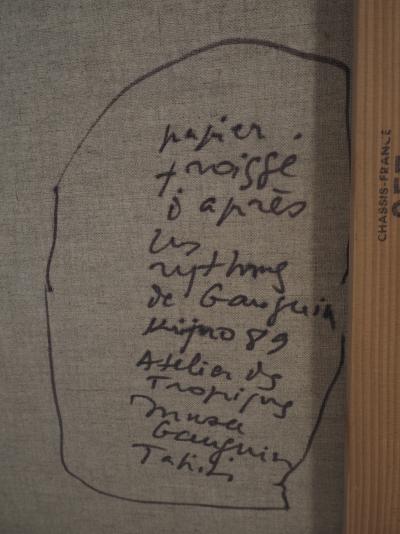 papier.
froissé
d'après
les
rythmes
de Gauguin
Kijno 89
Atelier des
Tropiques
Musée
Gauguin
Tahiti
CHASSIS-FRANCE